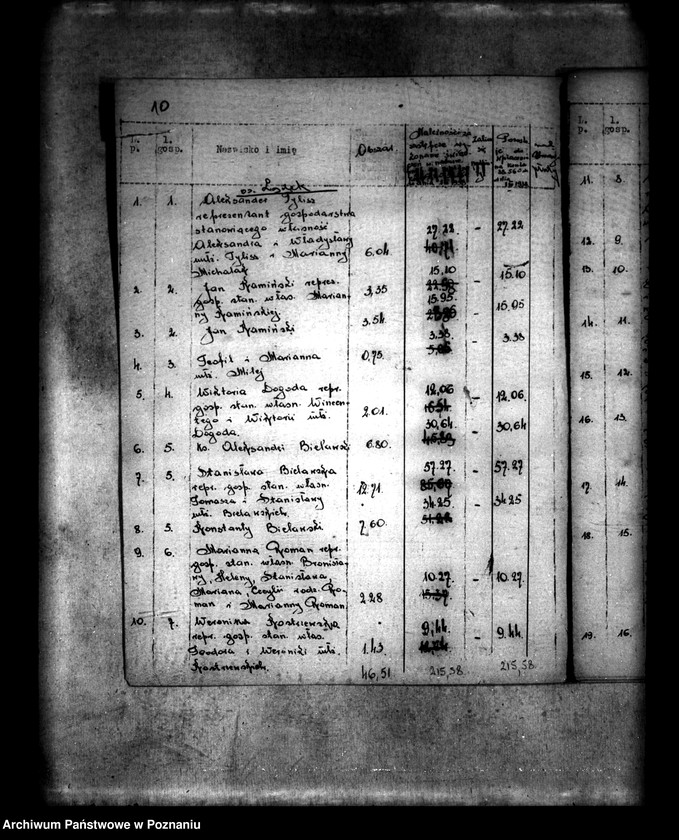 10
L. p.
l. gosp.
Nazwisko i imię
Obszar
os. Lozek
1. 1. Aleksander Tyliss
reprezentant gospodarstwa
stanowiącego własność
27.22 - 27.22
Aleksandra i Władysławy
małż. Tyliss i Marianny 6.04
Michalak 15.10 - 15.10
2. 2. Jan Kamiński repres.
gosp. stan. włas. Marian- 3,35
ny Kamińskiej. 15.95 - 15.95
3. 2. Jan Kamiński 3.54
3.38 - 3.38
4. 3. Teofil i Marianna 0,75
małż. Miłej
5. 4. Wiktoria Dogoda repr. 12.06 - 12.06
gosp. stan. własn. Wincen-
tego i Wiktorii małż. 2.01
Dogoda. 30,64 - 30,64
6. 5. Ks. Aleksandr Bielawski 6.80
7. 5. Stanisława Bielawska 57.27 - 57.27
repr. gosp. stan. własn. 12.71
Tomasza i Stanisławy 34.25 - 34.25
małż. Bielawskich.
8. 5. Konstanty Bielawski 7.60
9. 6. Marianna Roman repr.
gosp. stan. własn. Bronisła-
wy, Heleny, Stanisława, 10.27 - 10.27
Mariana, Cecylii rodz. Ro-
man i Marianny Roman. 2.28
10. 7. Weronika Kostrzewska 9,44 - 9.44
repr. gosp. stan. włas.
Teodora i Weroniki małż. 1.43
Kostrzewskich. 46,51 215,58 215,58
L. p.
l. gosp.
11. 8.
12. 9.
13. 10.
14. 11.
15. 12.
16. 13.
17. 14.
18. 15.
19. 16.
Archiwum Państwowe w Poznaniu